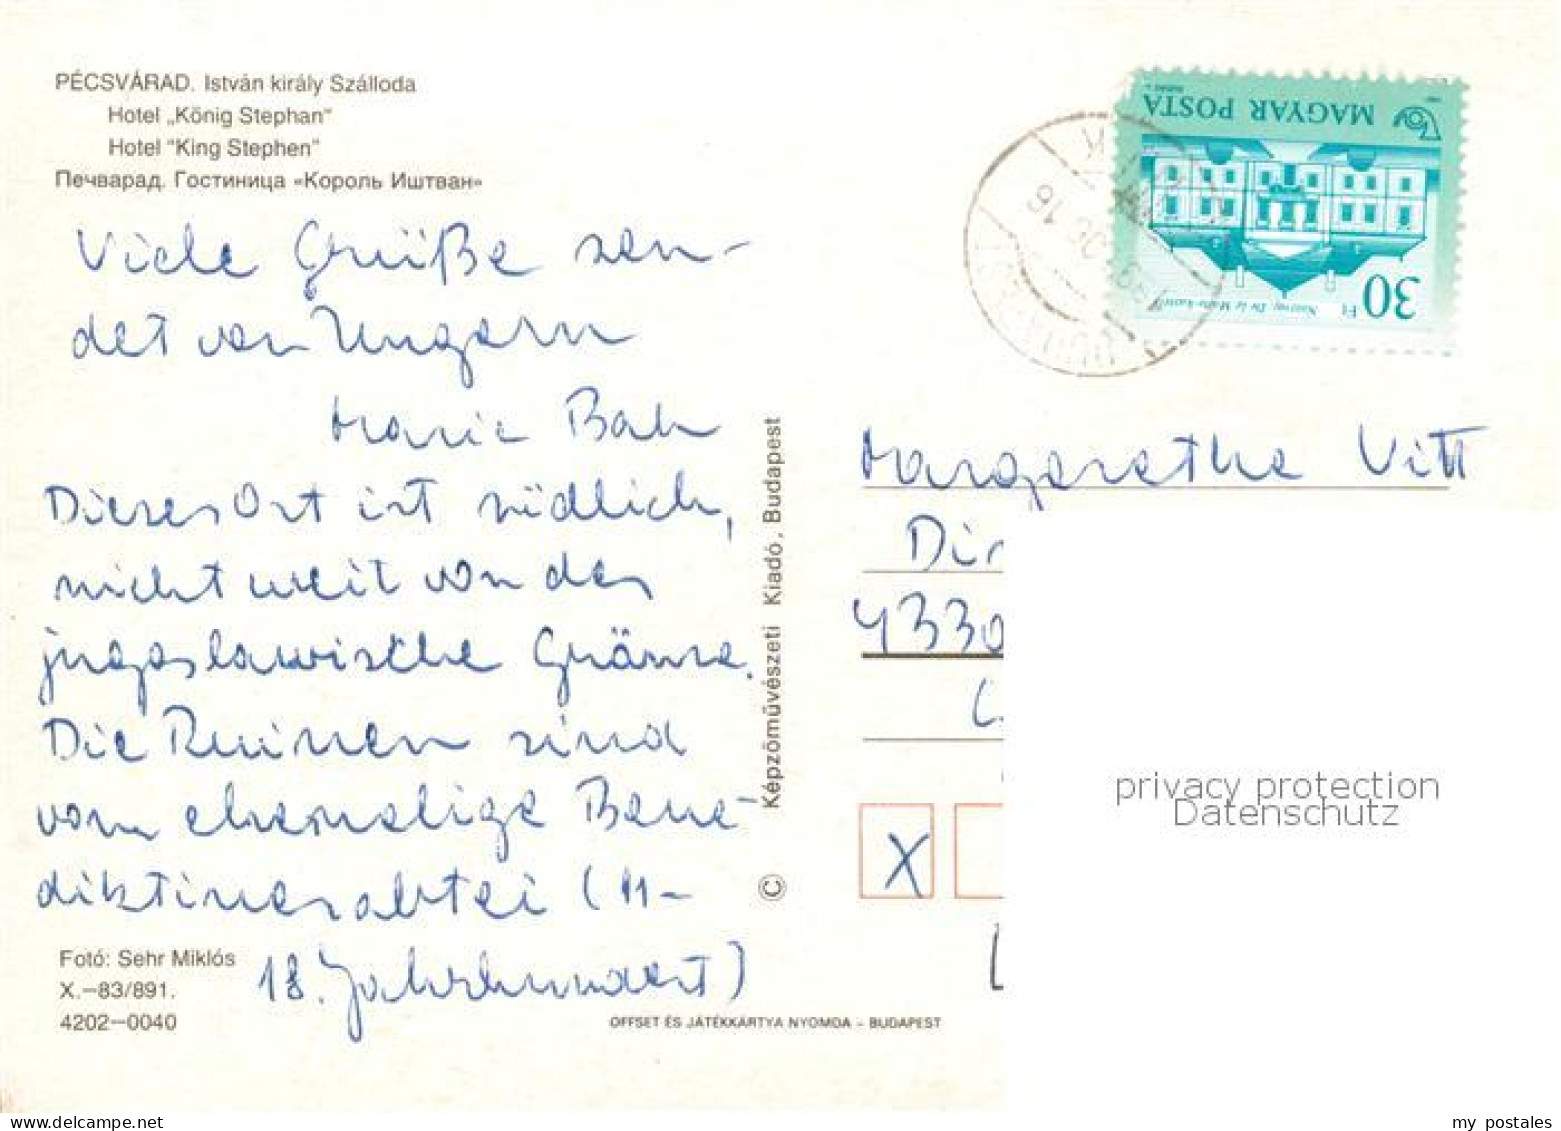 PÉCSVÁRAD. István király Szálloda
Hotel „König Stephan"
Hotel "King Stephen"
Печварад. Гостиница «Король Иштван»
Viele Grüße sen-
det von Ungarn
Marie Bah
Dieses Ort ist südlich,
nicht weit von des
jugoslawische Gränze.
Die Ruinen sind
vom ehemalige Bene-
diktinerabtei (11-
18. Jahrhundert)
Fotó: Sehr Miklós
X.–83/891.
4202–0040
OFFSET ÉS JÁTÉKKÁRTYA NYOMDA – BUDAPEST
© Képzőművészeti Kiadó, Budapest
MAGYAR POSTA
30 Ft
Margarethe Vitt
Di
4330
X
privacy protection
Datenschutz
my postales